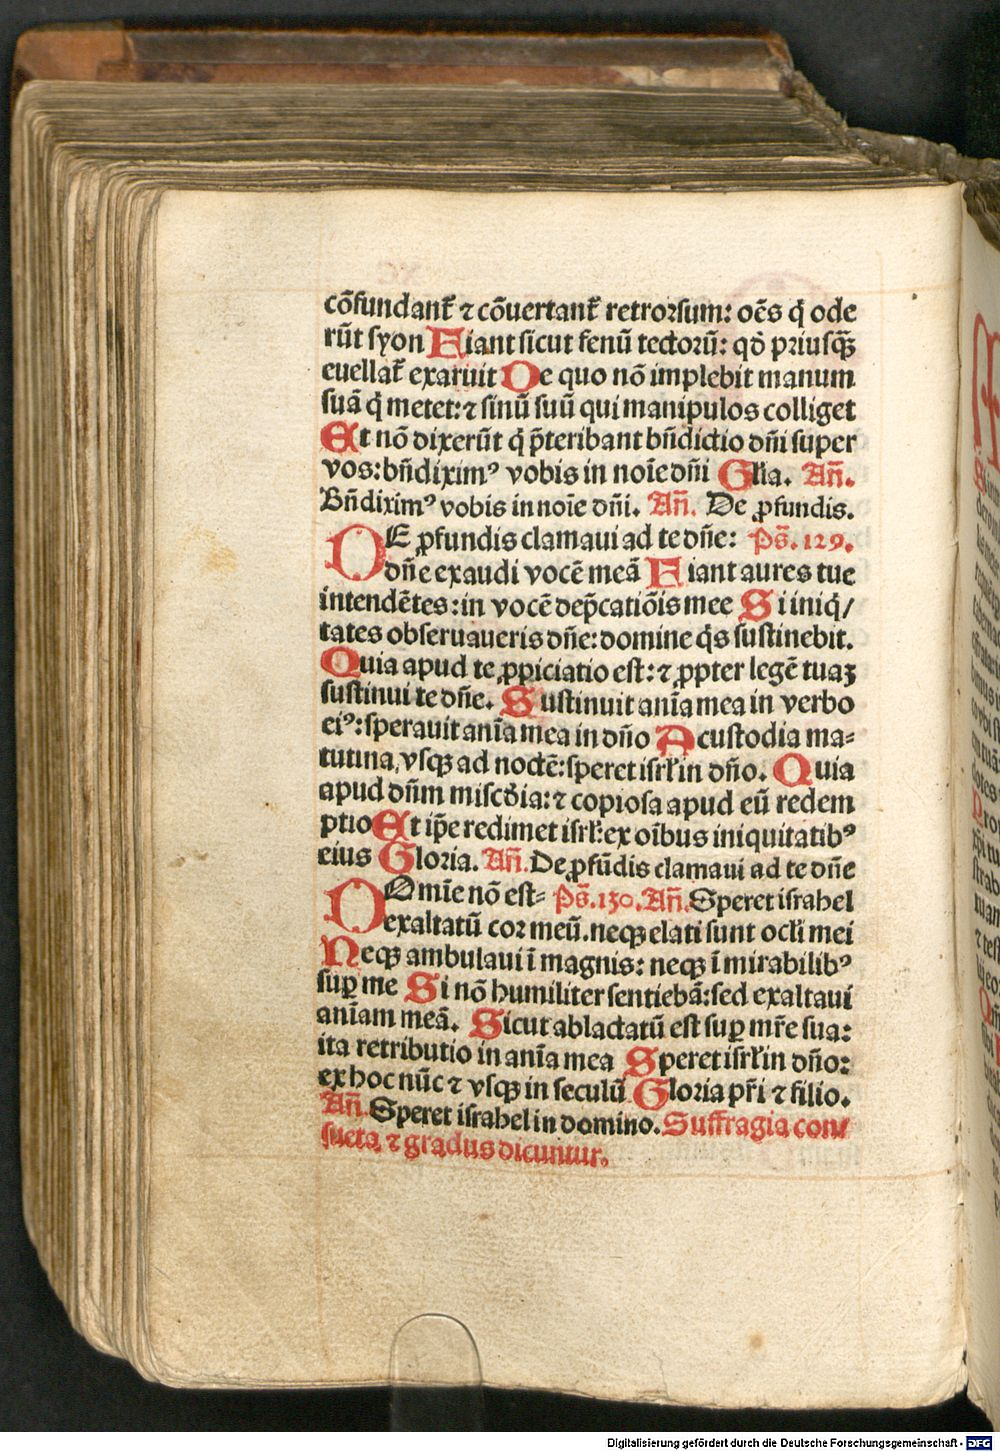 cōfundant᷑ ⁊ cōuertant᷑ retrorsum: oēs q̄ ode
rūt syon Fiant sicut fenū tectorū: qđ priusꝗ̄
euellat᷑ exaruit De quo nō implebit manum
suā q̄ metet: ⁊ sinū suū qui manipulos colliget
Et nō dixerūt q̄ p̄teribant bn̄dictio dn̄i super
vos: bn̄diximꝰ vobis in noīe dn̄i Glīa. An̄.
Bn̄diximꝰ vobis in noīe dn̄i. An̄. De ꝓfundis.
DE ꝓfundis clamaui ad te dn̄e: Ps̄. 129.
dn̄e exaudi vocē meā Fiant aures tue
intendētes: in vocē dep̄catiōis mee Si iniq̄/
tates obseruaueris dn̄e: domine q̄s sustinebit.
Quia apud te ꝓpiciatio est: ⁊ ꝓpter legē tuaꝫ
sustinui te dn̄e. Sustinuit anīa mea in verbo
eiꝰ: sperauit anīa mea in dn̄o A custodia ma=
tutina, vsqꝫ ad noctē: speret isrl̄ in dn̄o. Quia
apud dn̄m miscd̄ia: ⁊ copiosa apud eū redem
ptio Et ip̄e redimet isrl̄: ex oībus iniquitatibꝰ
eius Gloria. An̄. De ꝓfūdis clamaui ad te dn̄e
DOmīe nō est= Ps̄. 130. An̄. Speret israhel
exaltatū cor meū. neqꝫ elati sunt ocl̄i mei
Neqꝫ ambulaui ī magnis: neqꝫ ī mirabilibꝰ
suꝑ me Si nō humiliter sentiebā: sed exaltaui
anīam meā. Sicut ablactatū est suꝑ mr̄e sua:
ita retributio in anīa mea Speret isrl̄ in dn̄o:
ex hoc nūc ⁊ vsqꝫ in seculū Gloria pr̄i ⁊ filio.
An̄. Speret israhel in domino. Suffragia con/
sueta ⁊ gradus dicuntur.
Digitalisierung gefördert durch die Deutsche Forschungsgemeinschaft - DFG